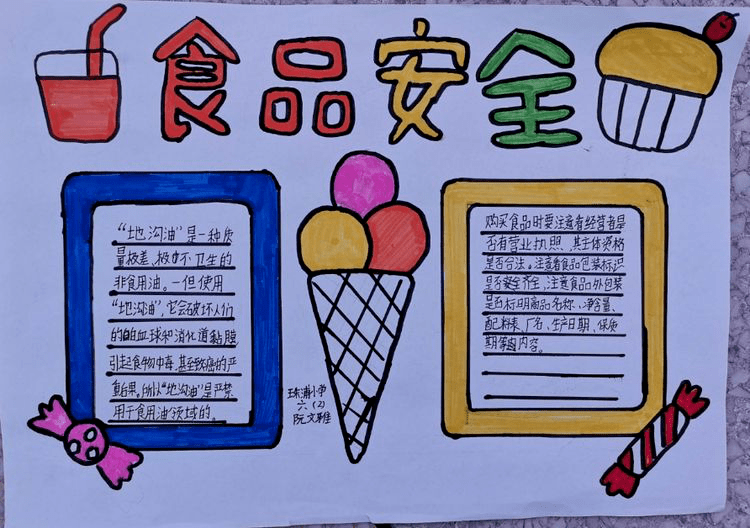 食品安全
“地沟油”是一种质
量极差、极其不卫生的
非食用油。一但使用
“地沟油”,它会破坏人们
的白血球和消化道黏膜,
引起食物中毒,甚至致癌的严
重后果。所以“地沟油”是严禁
用于食用油领域的。
珠浦小学
六(2)
阮文雅
购买食品时要注意看经营者是
否有营业执照,其主体资格
是否合法。注意看食品包装标识
是否安全齐全,注意食品外包装
是否标明商品名称、净含量、
配料表、厂名、生产日期、保质
期等内容。